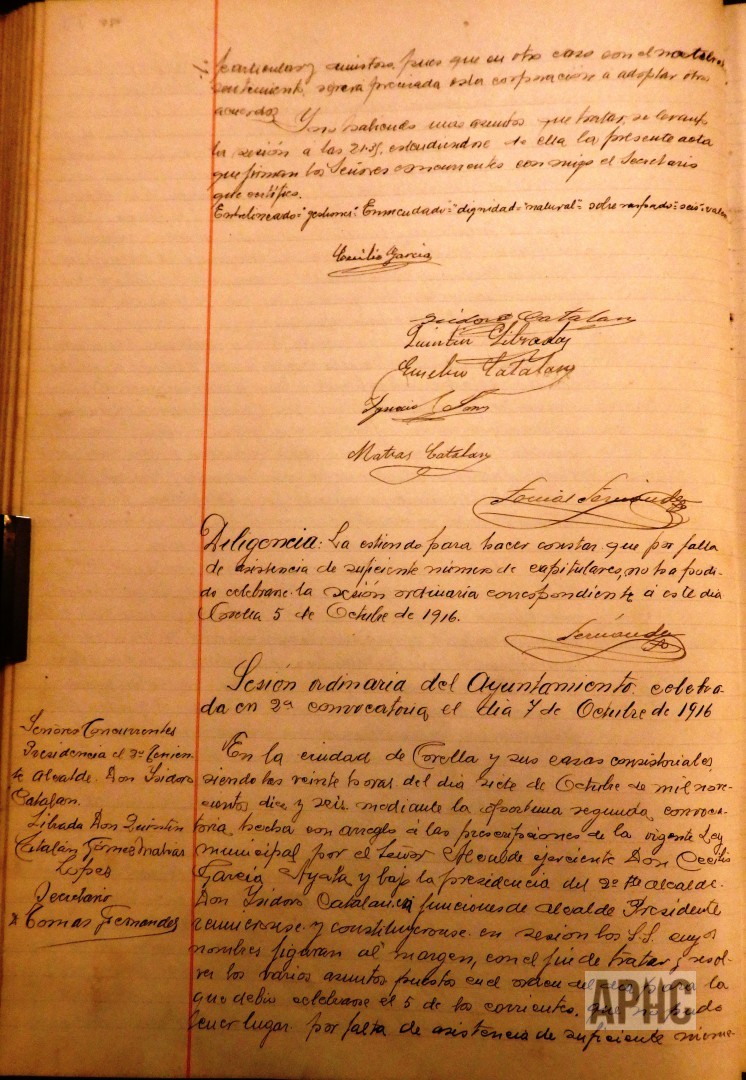 particular y ministros, pues que en otro caso con el natural
sentimiento, se verá precisada esta corporacion a adoptar otros
acuerdos
Y no habiendo mas asuntos que tratar, se levantó
la sesión a las 21-35, estendiendose de ella la presente acta
que firman los Señores concurrentes con migo el Secretario
que certifico.
Entrelineado="gestiones" Enmendado="dignidad"="natural"= sobre raspado="seis"=valen
Cecilio Garcia
Isidoro Catalan
Quintin Librada
Eusebio Catalan
Ignacio
Matias Catalan
Tomás Fernández
Diligencia: La estiendo para hacer constar que por falta
de asistencia de suficiente número de capitulares, no ha podi-
do celebrarse la sesión ordinaria correspondiente á este dia
Corella 5 de Octubre de 1916.
Fernández
Sesión ordinaria del Ayuntamiento celebra-
da en 2ª convocatoria el dia 7 de Octubre de 1916
Señores Concurrentes
Presidencia el 2º tenien-
te alcalde Don Isidoro
Catalan.
Librada Don Quintin
Catalán
López
Secretario
Tomas Fernandez
En la ciudad de Corella y sus casas consistoriales
siendo las veinte horas del dia siete de Octubre de mil nove-
cientos diez y seis, mediante la oportuna segunda convoca-
toria, hecha con arreglo á las prescripciones de la vigente Ley
municipal por el Señor Alcalde ejerciente Don Cecilio
García Ayala y bajo la presidencia del 2º tte alcalde
Don Isidoro Catalan en funciones de alcalde Presidente
reunieronse y constituyeronse en sesión los S.S. cuyos
nombres figuran al margen, con el fin de tratar y resol-
ver los varios asuntos puestos en el orden del dia para la
que debio celebrarse el 5 de los corrientes, que no pudo
tener lugar por falta de asistencia de suficiente núme-
APHC